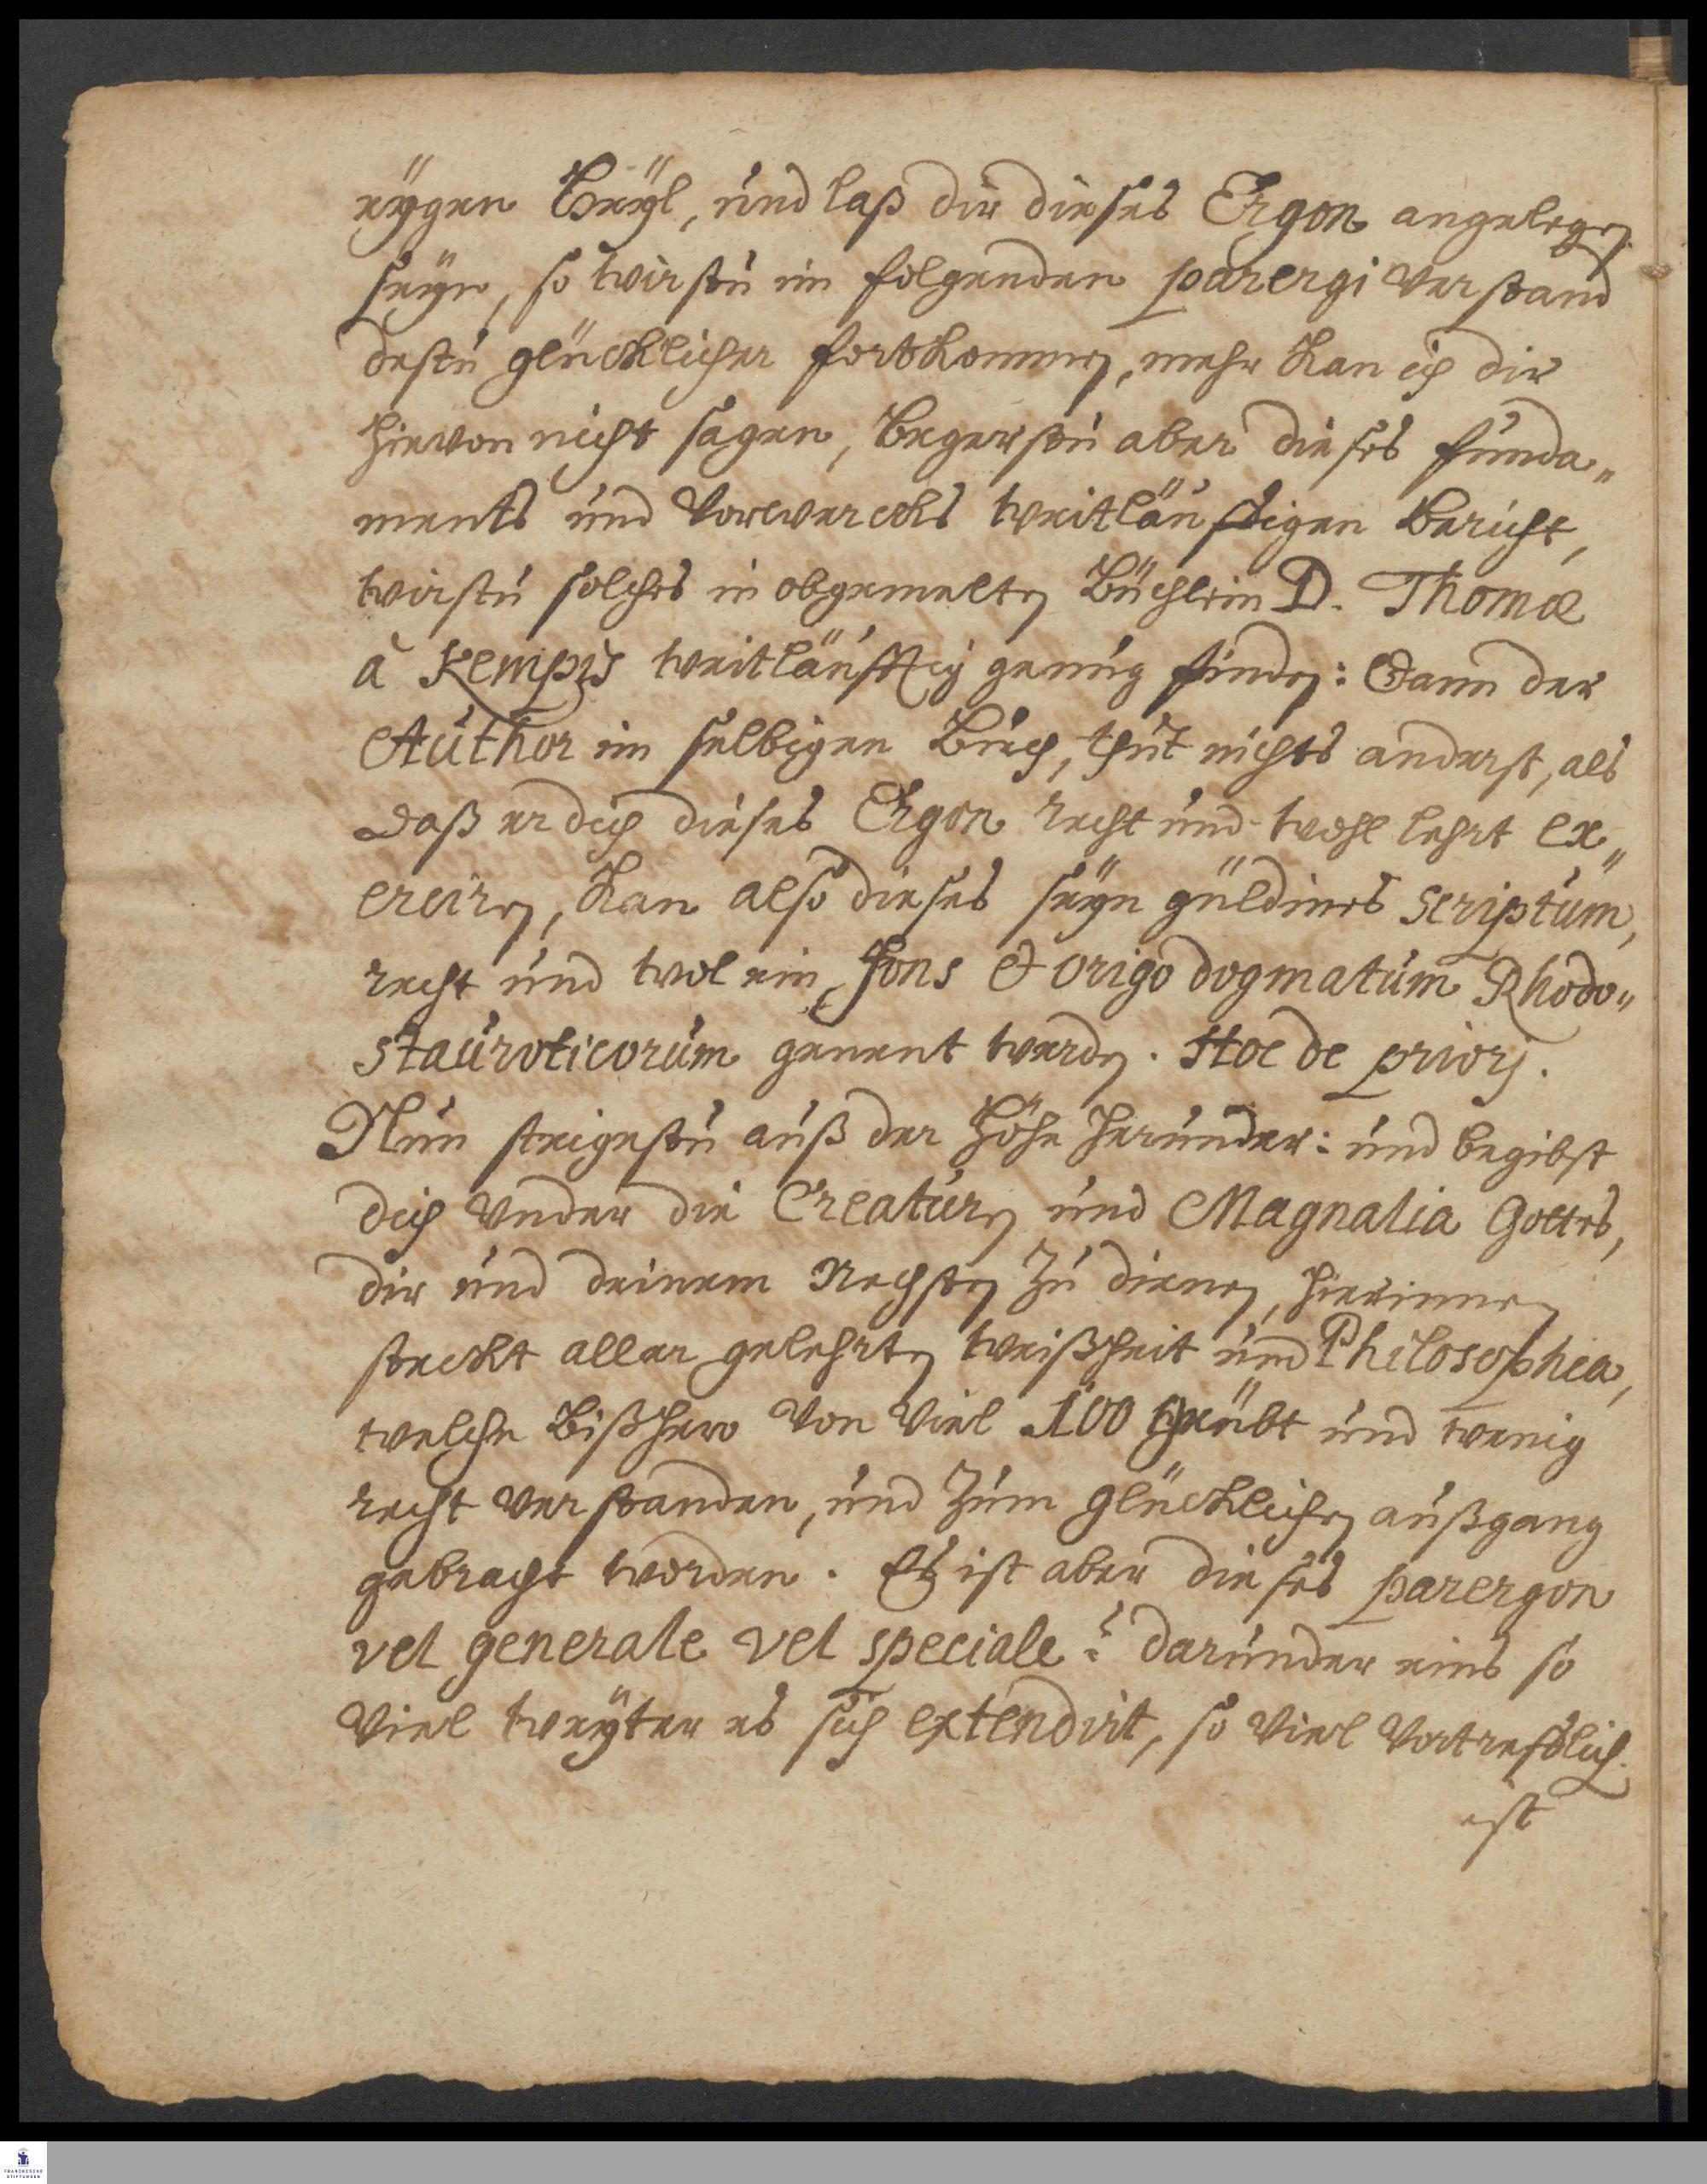 eÿgen Theÿl, und laß dir dieses Ergon angelegen
seÿn, so wirstu im folgenden parergi verstand
destu glücklicher fortkommen, mehr kan ich dir
hievon nicht sagen, begerstu aber dieses funda„
ments und Vorwercks weitläuftigen bericht,
wirstu solches in obgemelten Büchlein D. Thomæ
à Kempis weitläufftig genug finden: Dann der
Author im selbigen Buch, thut nichts anderst, als
daß er dich dieses Ergon recht und wohl lehrt ex„
erciren, kan also dieses seÿn güldines scriptum,
recht und wol ein fons & origo dogmatum Rhodo„
stauroticorum genent werden. Hoc de priorj.
Nun steigestu auß der Höhe herunder: und begibst
dich under die Creaturen und Magnalia Gottes,
dir und deinem Nechsten zu dienen, hierinnen
steckt aller gelehrten weißheit und Philosophia,
welche bißhero von viel 100 geübt und wenig
recht verstanden, und zum glücklichen außgang
gebracht worden. Es ist aber dieses parergon
vel generale vel speciale: darunder eins so
viel weÿter es sich extendirt, so viel vortreflich.
ist
FRANCKESCHE
STIFTUNGEN